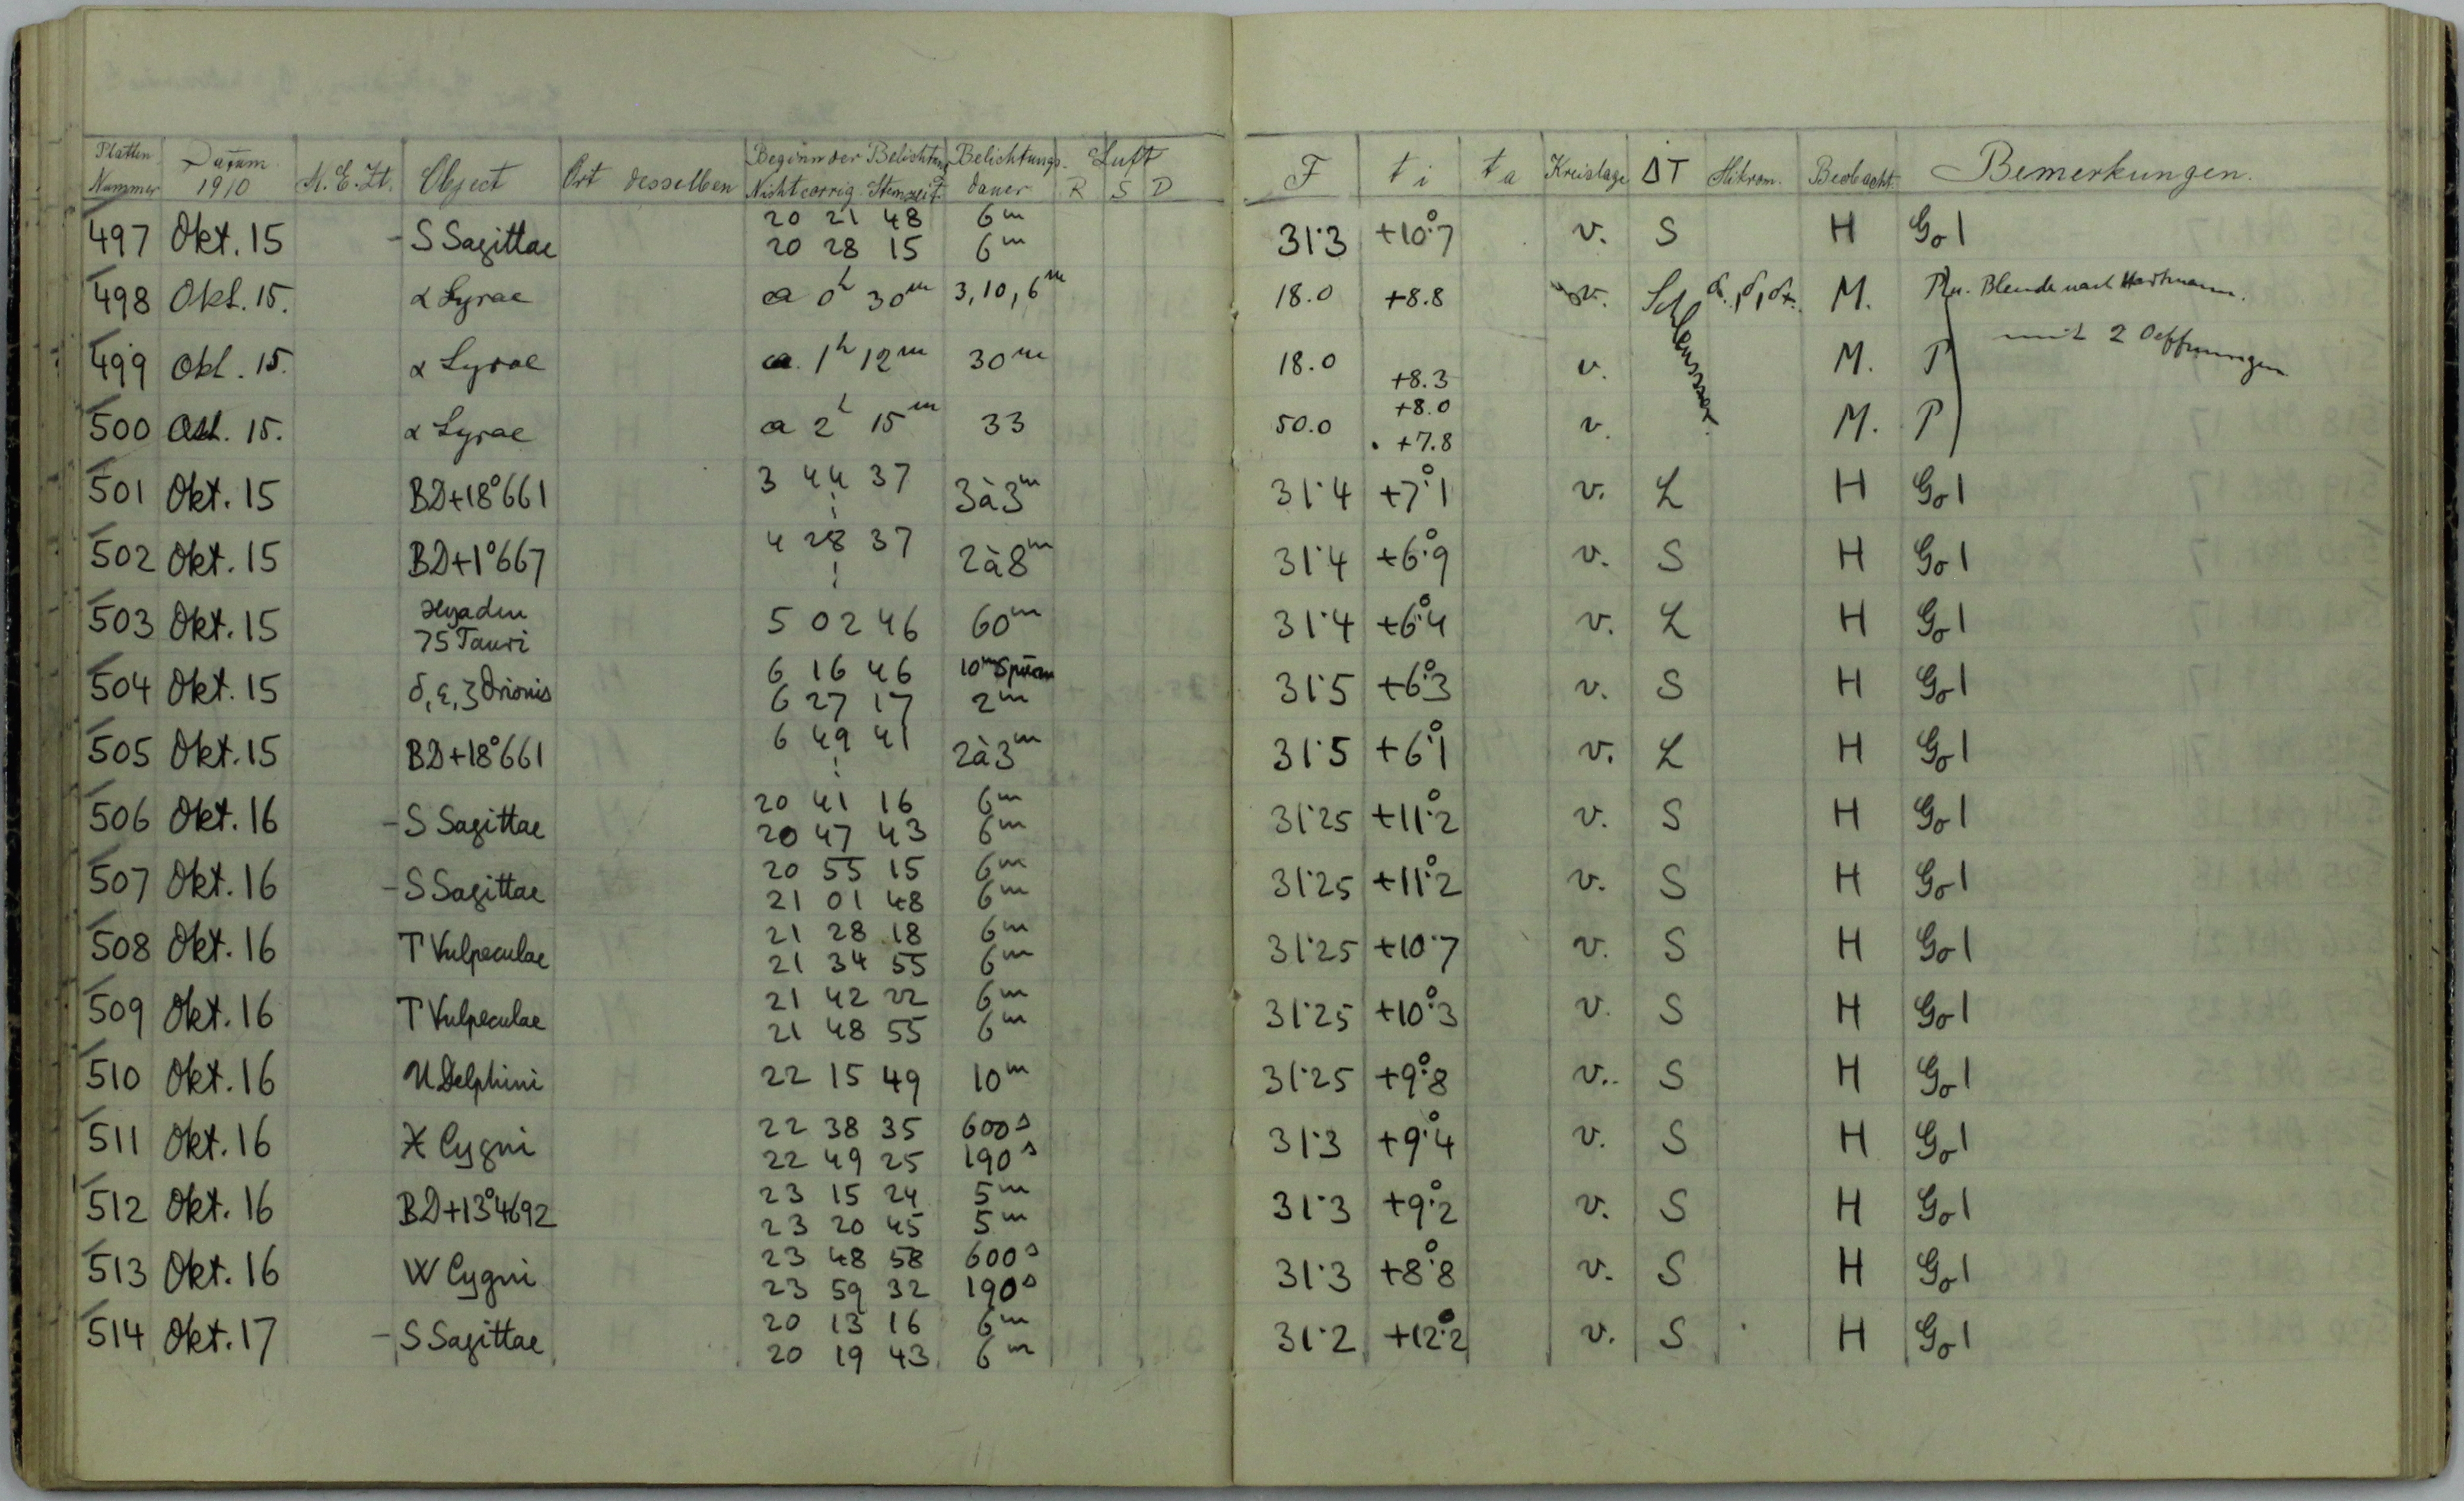 Platten Nummer Datum 1910 M.E.Zt. Object Ort desselben Beginn der Belichtung Nicht corrig. Sternzeit Belichtungsdauer Luft R S D F t i t a Kreislage ΔT Mikrom. Beobacht. Bemerkungen.
497 Okt. 15 - S Sagittae 20 21 48 6m 31·3 +10°.7 v. S H Go1
20 28 15 6m
498 Okt. 15. α Lyrae a 0h 30m 3,10,6m 18.0 +8.8 v. M. Blende nach Hartmann.
499 Okt. 15. α Lyrae a. 1h 12m 30m 18.0 +8.3 v. M. P mit 2 Oeffnungen
500 Okt. 15. α Lyrae a 2h 15m 33 50.0 +8.0 v. M. P
+7.8
501 Okt. 15 BD+18°661 3 44 37 3à3m 31·4 +7°.1 v. L H Go1
502 Okt. 15 BD+1°667 4 28 37 2à8m 31·4 +6°.9 v. S H Go1
503 Okt. 15 Hyaden 5 02 46 60m 31·4 +6°.4 v. L H Go1
75 Tauri
504 Okt. 15 δ, ε, ζ Orionis 6 16 46 10m Spuren 31·5 +6°.3 v. S H Go1
6 27 17 2m
505 Okt. 15 BD+18°661 6 49 41 2à3m 31·5 +6°.1 v. L H Go1
506 Okt. 16 - S Sagittae 20 41 16 6m 31·25 +11°.2 v. S H Go1
20 47 43 6m
507 Okt. 16 - S Sagittae 20 55 15 6m 31·25 +11°.2 v. S H Go1
21 01 48 6m
508 Okt. 16 T Vulpeculae 21 28 18 6m 31·25 +10·7 v. S H Go1
21 34 55 6m
509 Okt. 16 T Vulpeculae 21 42 22 6m 31·25 +10°.3 v. S H Go1
21 48 55 6m
510 Okt. 16 U Delphini 22 15 49 10m 31·25 +9°.8 v. S H Go1
511 Okt. 16 X Cygni 22 38 35 600s 31·3 +9°.4 v. S H Go1
22 49 25 190s
512 Okt. 16 BD+13°4692 23 15 24 5m 31·3 +9°.2 v. S H Go1
23 20 45 5m
513 Okt. 16 W Cygni 23 48 58 600s 31·3 +8°.8 v. S H Go1
23 59 32 190s
514 Okt. 17 - S Sagittae 20 13 16 6m 31·2 +12°.2 v. S H Go1
20 19 43 6m